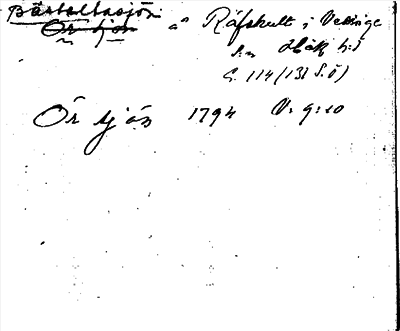 Bästaltasjön
Ör sjön å Räfskulle i Vessige
sn Höök h:d
C. 114 (131 S.Ö)
Ör sjön 1794 V: 9:10